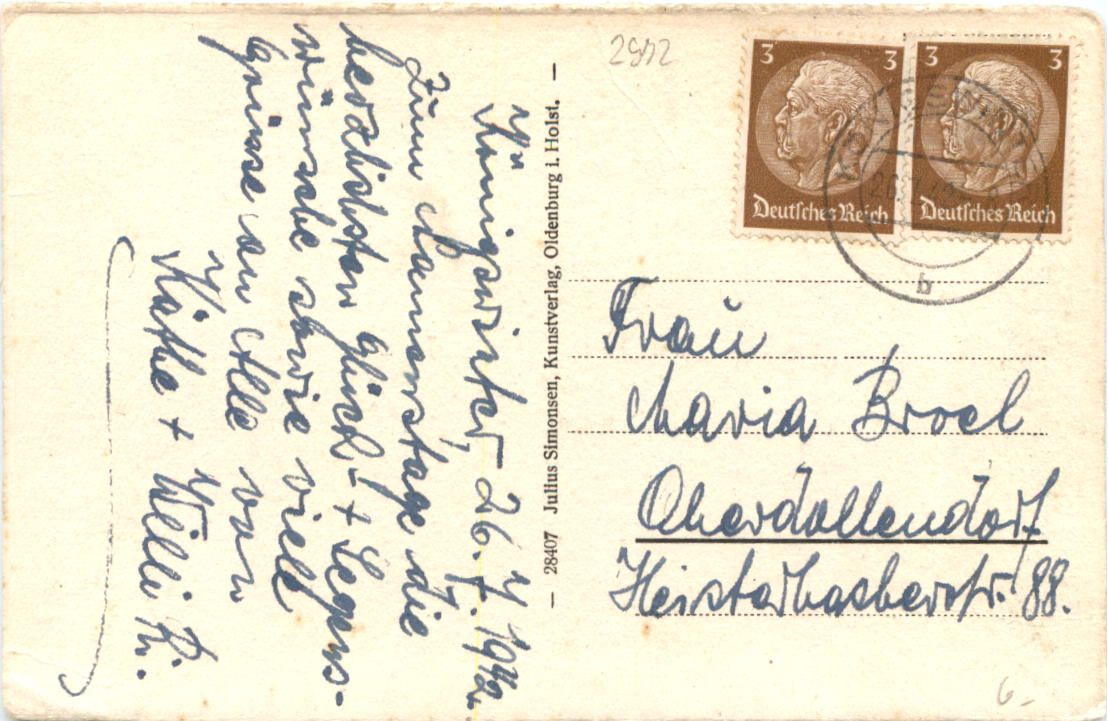 Königswinter, 26.7.1942.
Zum Namenstage die
herzlichsten Glück- + Segens-
wünsche sowie viele
Grüsse an Alle von
Käthe + Willi Kr.
— 28407 Julius Simonsen, Kunstverlag, Oldenburg i. Holst. —
2942
3 3
Deutsches Reich
3 3
Deutsches Reich
26.7.42
b
Frau
Maria Broel
Oberdollendorf
Heisterbacherstr. 88.
6.-